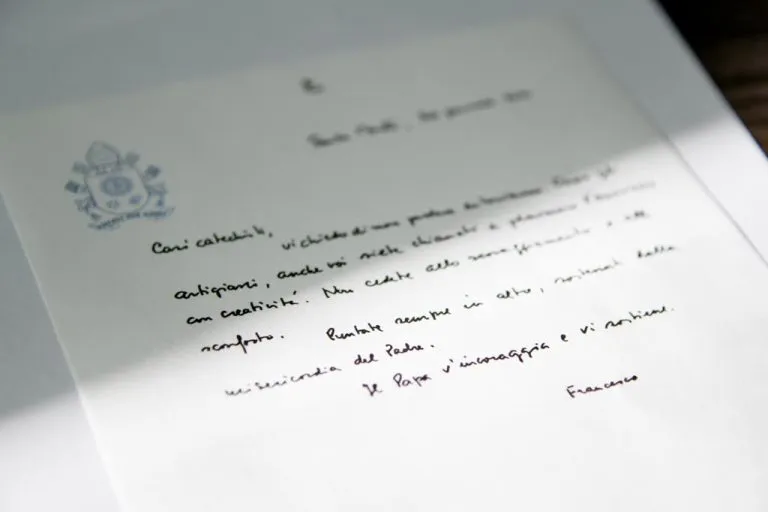 Cari catechisti, vi chiedo di non perdere entusiasmo. Come gli
artigiani, anche voi siete chiamati a plasmare l'annuncio
con creatività. Non cedete allo scoraggiamento e allo
sconforto. Puntate sempre in alto, sostenuti dalla
misericordia del Padre.
Il Papa v'incoraggia e vi sostiene.
Francesco